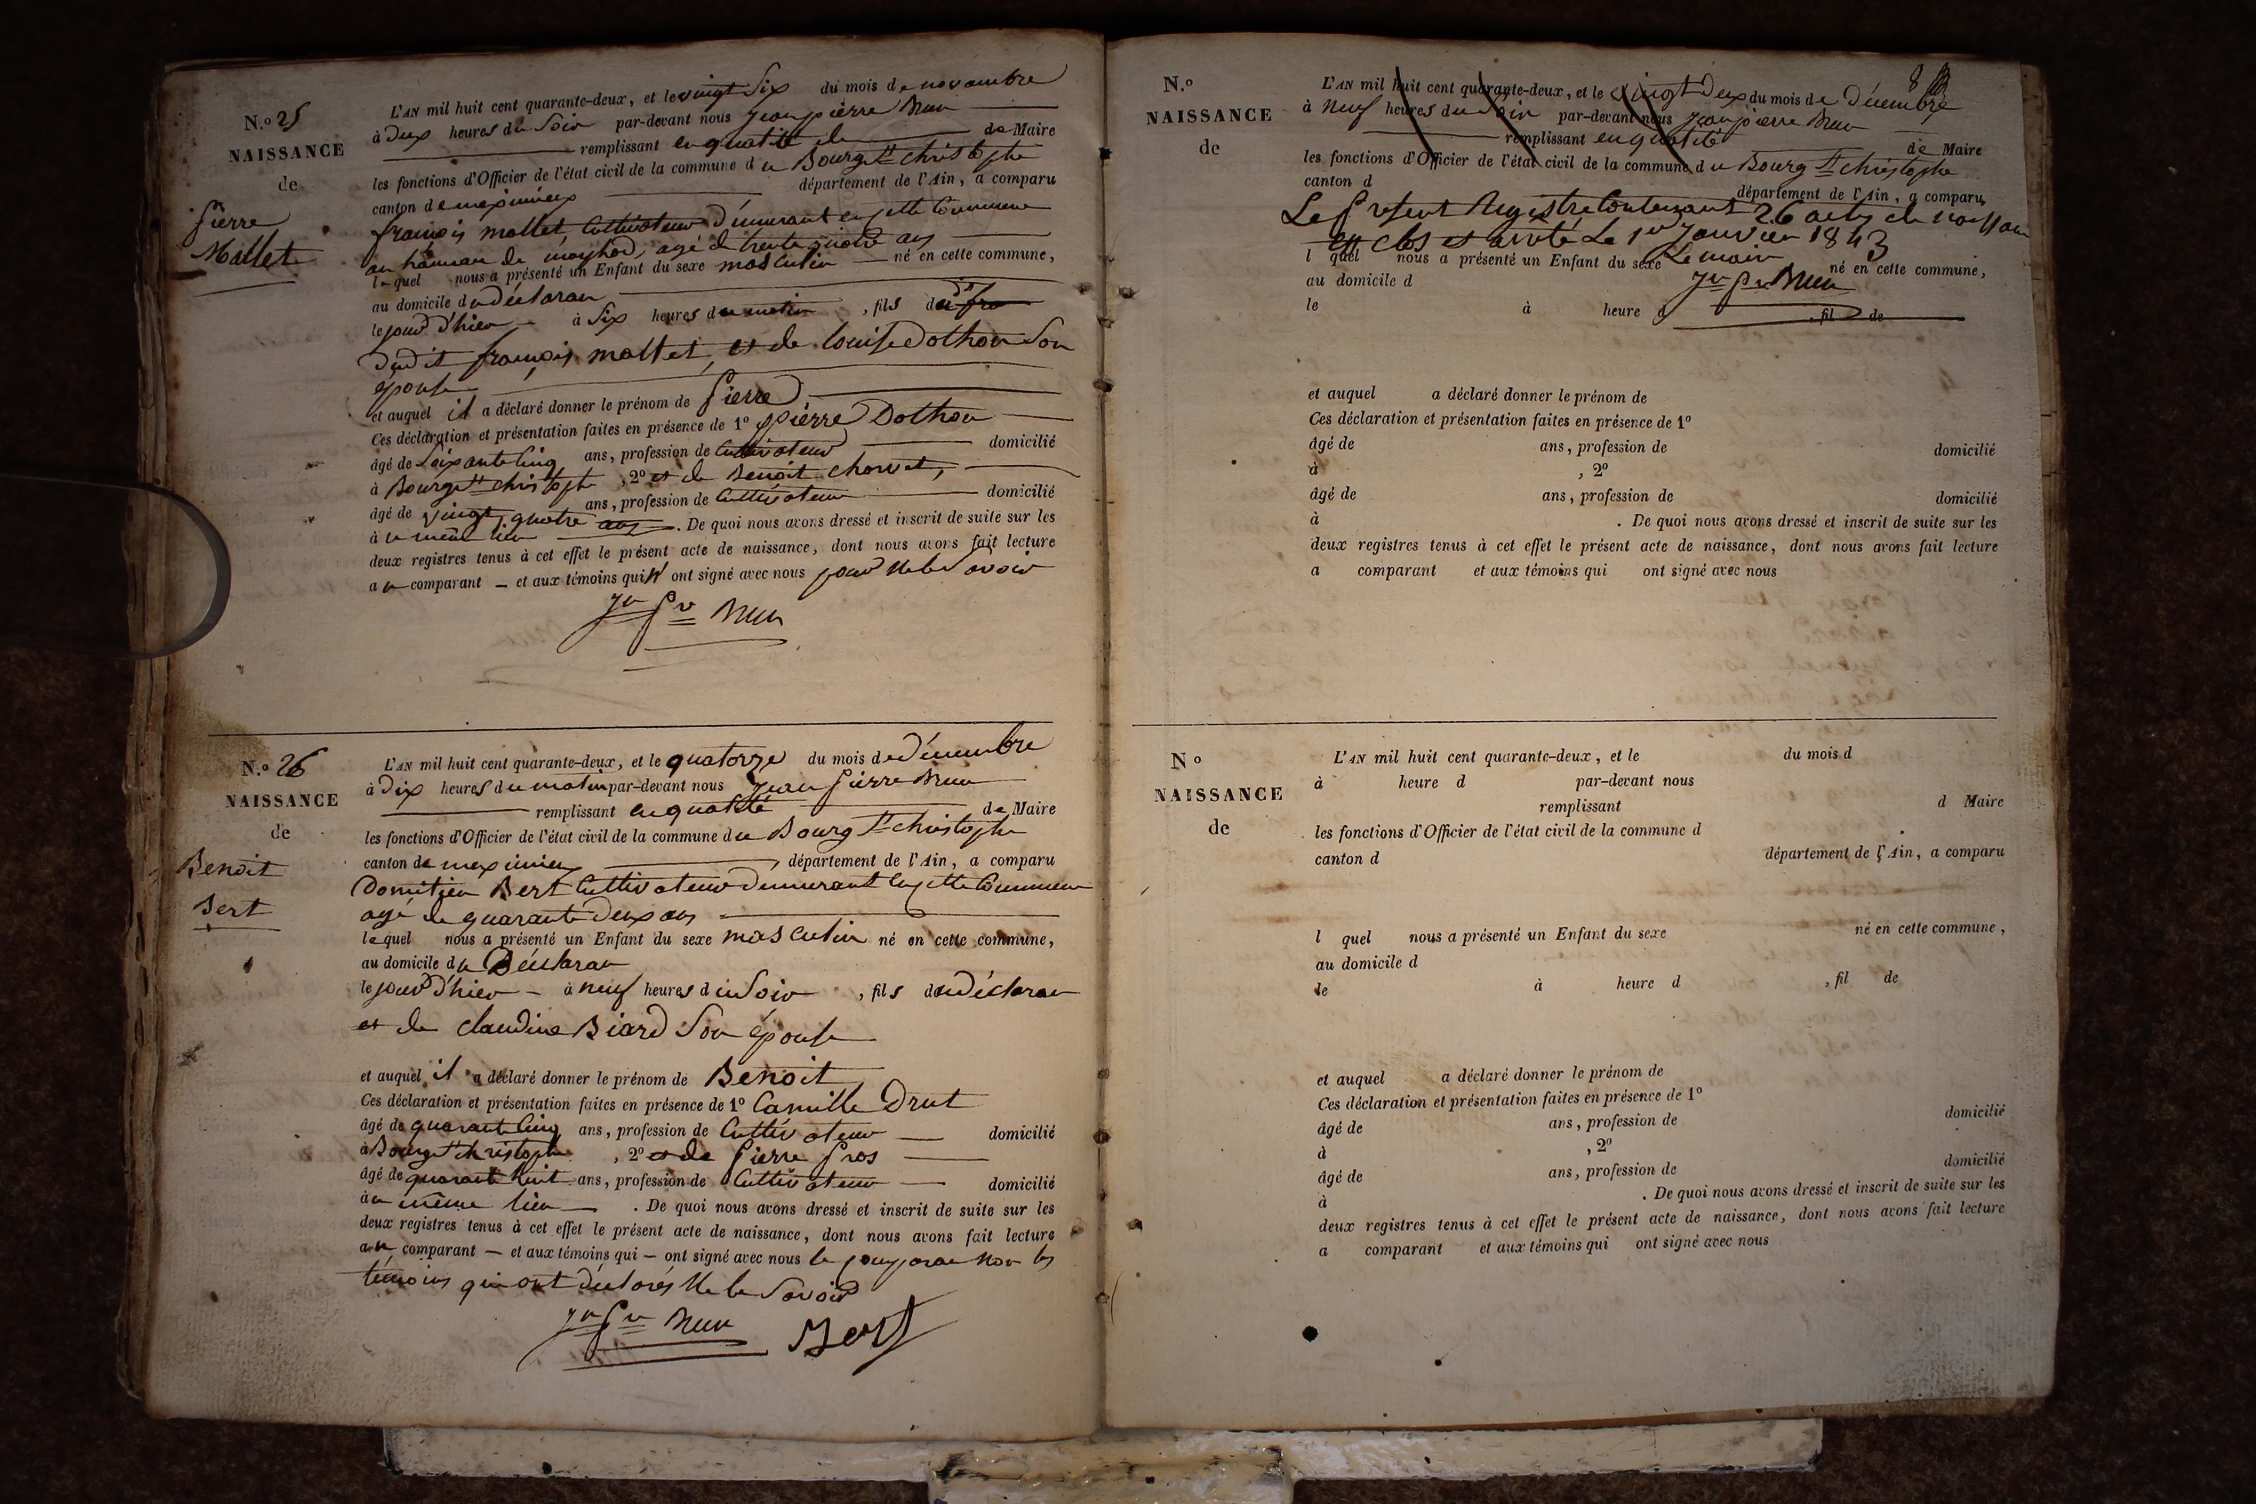 N.º 25
NAISSANCE
de
Pierre
Mallet
L'AN mil huit cent quarante-deux, et le vingt Six du mois de novembre
à deux heures du Soir par-devant nous Jean pierre Brun
remplissant en qualité de de Maire
les fonctions d'Officier de l'état civil de la commune du Bourg St christophe
canton de meximieux département de l'Ain, a comparu
françois mallet, Cultivateur demeurant en cette Commune
au hameau de agé de trente quatre ans
lequel nous a présenté un Enfant du sexe masculin né en cette commune,
au domicile du déclaran
le jour d'hier à Six heures du matin, fils
dudit françois mallet, et de louise Dothon Son
épouse
et auquel il a déclaré donner le prénom de Pierre
Ces déclaration et présentation faites en présence de 1º pierre Dothon
âgé de Soixante Cinq ans, profession de Cultivateur domicilié
à Bourg St christophe, 2º et de Benoit chorvet,
âgé de vingt quatre ans ans, profession de Cultivateur domicilié
à u même lieu. De quoi nous avons dressé et inscrit de suite sur les
deux registres tenus à cet effet le présent acte de naissance, dont nous avons fait lecture
au comparant – et aux témoins qui n' ont signé avec nous pour ne le Savoir
Jn Pre Brun
N.º 26
NAISSANCE
de
Benoit
Bert
L'AN mil huit cent quarante-deux, et le quatorze du mois de Décembre
à Dix heures du matin par-devant nous Jean Pierre Brun
remplissant en qualité de Maire
les fonctions d'Officier de l'état civil de la commune du Bourg St christophe
canton de meximieux, département de l'Ain, a comparu
Domitien Bert Cultivateur demeurant en cette Commune
agé de quarante deux ans
lequel nous a présenté un Enfant du sexe masculin né en cette commune,
au domicile du Déclaran
le jour d'hier – à neuf heures du Soir, fils du déclaran
et de claudine Biard Son épouse
et auquel il a déclaré donner le prénom de Benoit
Ces déclaration et présentation faites en présence de 1º Camille Drut
âgé de quarant Cinq ans, profession de Cultivateur domicilié
à Bourg St christophe, 2º et de Pierre Gros
âgé de quarant huit ans, profession de Cultivateur domicilié
à u même lieu. De quoi nous avons dressé et inscrit de suite sur les
deux registres tenus à cet effet le présent acte de naissance, dont nous avons fait lecture
au comparant – et aux témoins qui – ont signé avec nous le non les
témoins qui ont déclarés ne le Savoir
Jn Pre Brun Bert
N.º
NAISSANCE
de
L'AN mil huit cent quarante-deux, et le vingt deux du mois de Décembre
à neuf heures du Soir par-devant nous Jean pierre Brun
remplissant en qualité de Maire
les fonctions d'Officier de l'état civil de la commune du Bourg St christophe
canton d département de l'Ain, a comparu
Le présent Registre Contenant 26 actes de naissan
clos et arrêté Le 1er Janvier 1843
l quel nous a présenté un Enfant du sexe Le maire né en cette commune,
au domicile d Jn Pre Brun
le à heure d, fil de
et auquel a déclaré donner le prénom de
Ces déclaration et présentation faites en présence de 1º
âgé de ans, profession de domicilié
à , 2º
âgé de ans, profession de domicilié
à . De quoi nous avons dressé et inscrit de suite sur les
deux registres tenus à cet effet le présent acte de naissance, dont nous avons fait lecture
a comparant et aux témoins qui ont signé avec nous
Nº
NAISSANCE
de
L'AN mil huit cent quarante-deux, et le du mois d
à heure d par-devant nous
remplissant d Maire
les fonctions d'Officier de l'état civil de la commune d
canton d département de l'Ain, a comparu
l quel nous a présenté un Enfant du sexe né en cette commune,
au domicile d
le à heure d , fil de
et auquel a déclaré donner le prénom de
Ces déclaration et présentation faites en présence de 1º
âgé de ans, profession de domicilié
à , 2º
âgé de ans, profession de domicilié
à . De quoi nous avons dressé et inscrit de suite sur les
deux registres tenus à cet effet le présent acte de naissance, dont nous avons fait lecture
a comparant et aux témoins qui ont signé avec nous